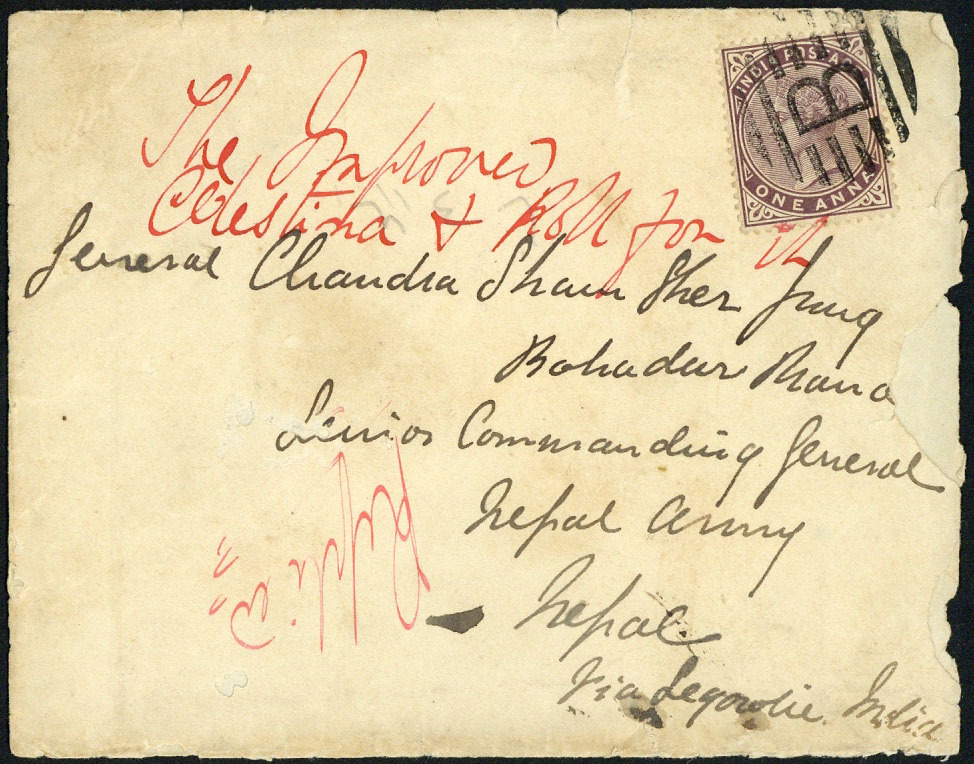 INDIA POSTAGE
B
ONE ANNA
The Improved
Celestina & Roll for it
General Chandra Sham Sher Jung
Bahadur Rana
Senior Commanding General
Nepal Army
Nepal
Via Segowlie India